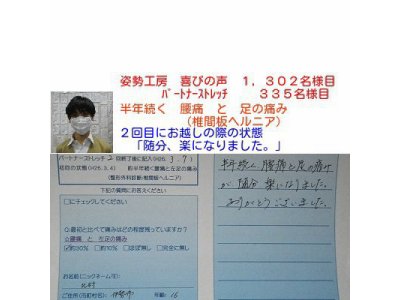 姿勢工房 喜びの声 1,302名様目
パートナーストレッチ 335名様目
半年続く 腰痛 と 足の痛み
（椎間板ヘルニア）
2回目にお越しの際の状態
「随分、楽になりました。」
パートナーストレッチ 2 回終了後に記入(H25. 3. 7)
初回の状態(H25.3.4) 約半年続く腰痛と左足の痛み
(整形外科診断:椎間板ヘルニア)
下記の質問にお答えください
□にチェックしてください
Q.最初と比べて痛みはどの程度残っていますか?
☆腰痛 と 左足の痛み
☑約30% □約10% □ほぼ無し □完全に無し
お名前(ニックネーム可):
ご住所(市町村名):
年齢: 16
半年続く腰痛と足の痛み
が 随分 楽になりました。
ありがとうございました。